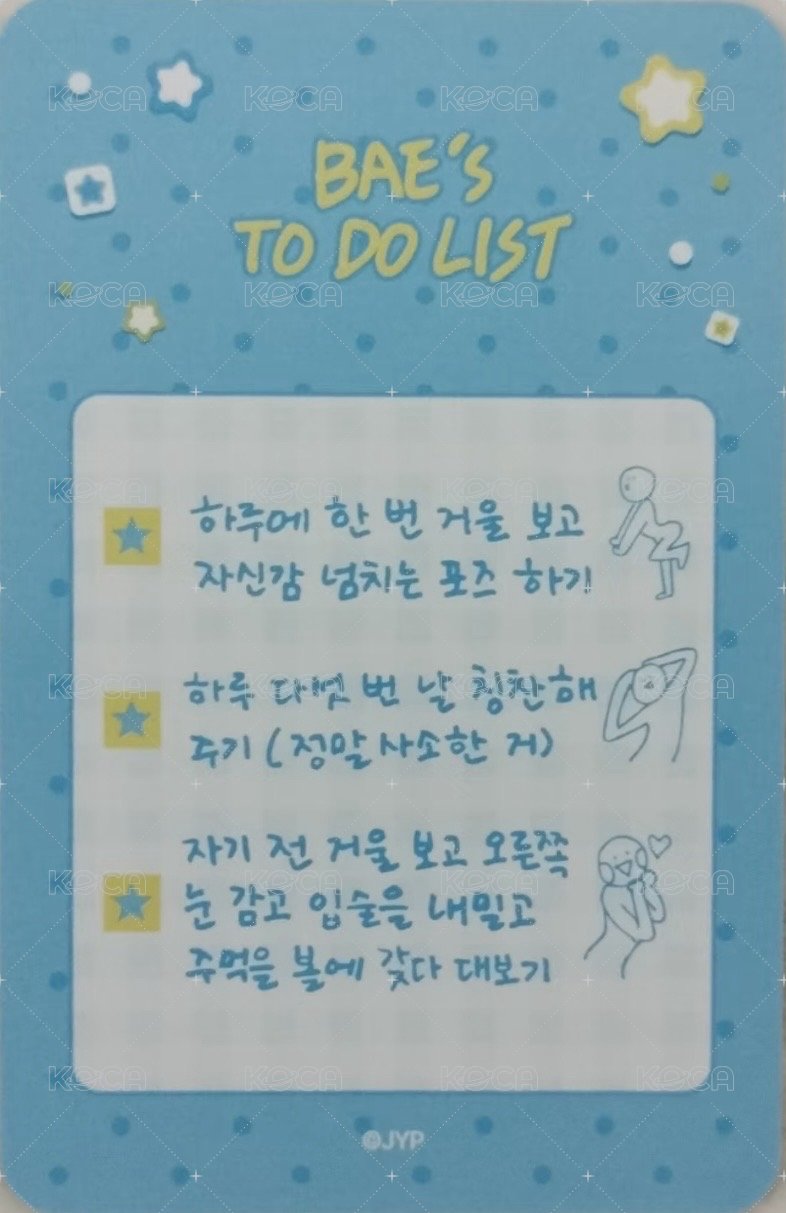 BAE'S
TO DO LIST
하루에 한 번 거울 보고
자신감 넘치는 포즈 하기!
하루 다섯 번 날 칭찬해
주기 (정말 사소한 거)
자기 전 거울 보고 오른쪽
눈 감고 입술을 내밀고
주먹을 볼에 갖다 대보기
©JYP
KOCA